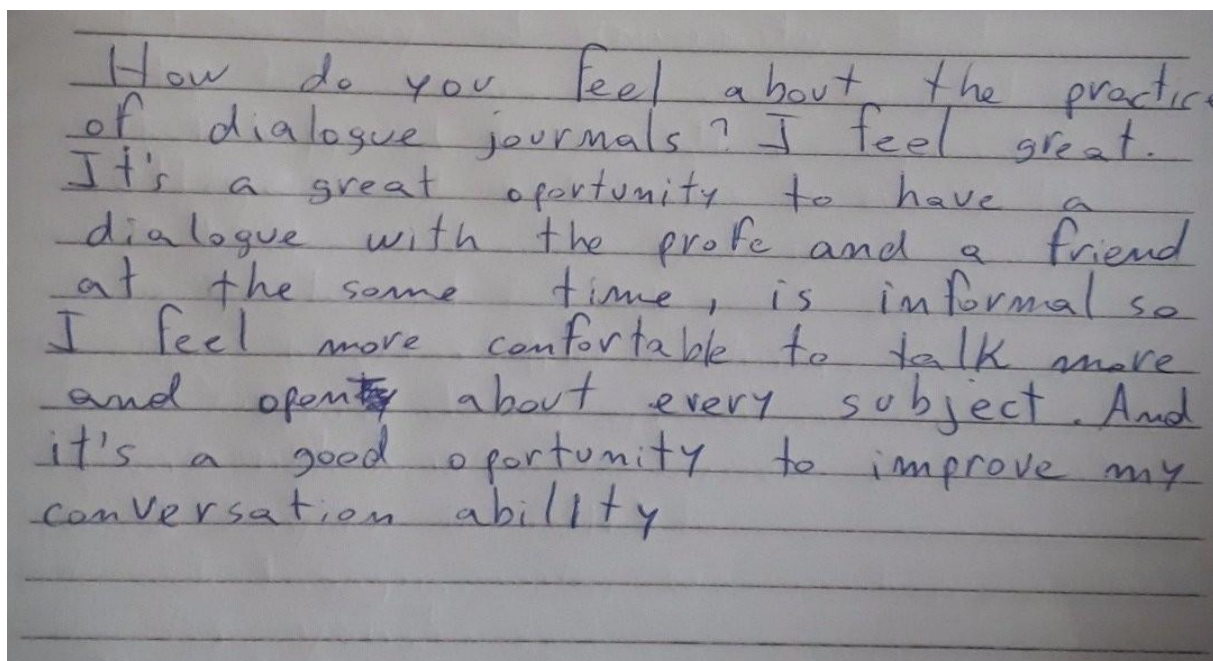 How do you feel about the practic
of dialogue journals? I feel great.
It's a great oportunity to have a
dialogue with the profe and a friend
at the same time, is informal so
I feel more confortable to talk more
and open about every subject. And
it's a good oportunity to improve my
conversation ability